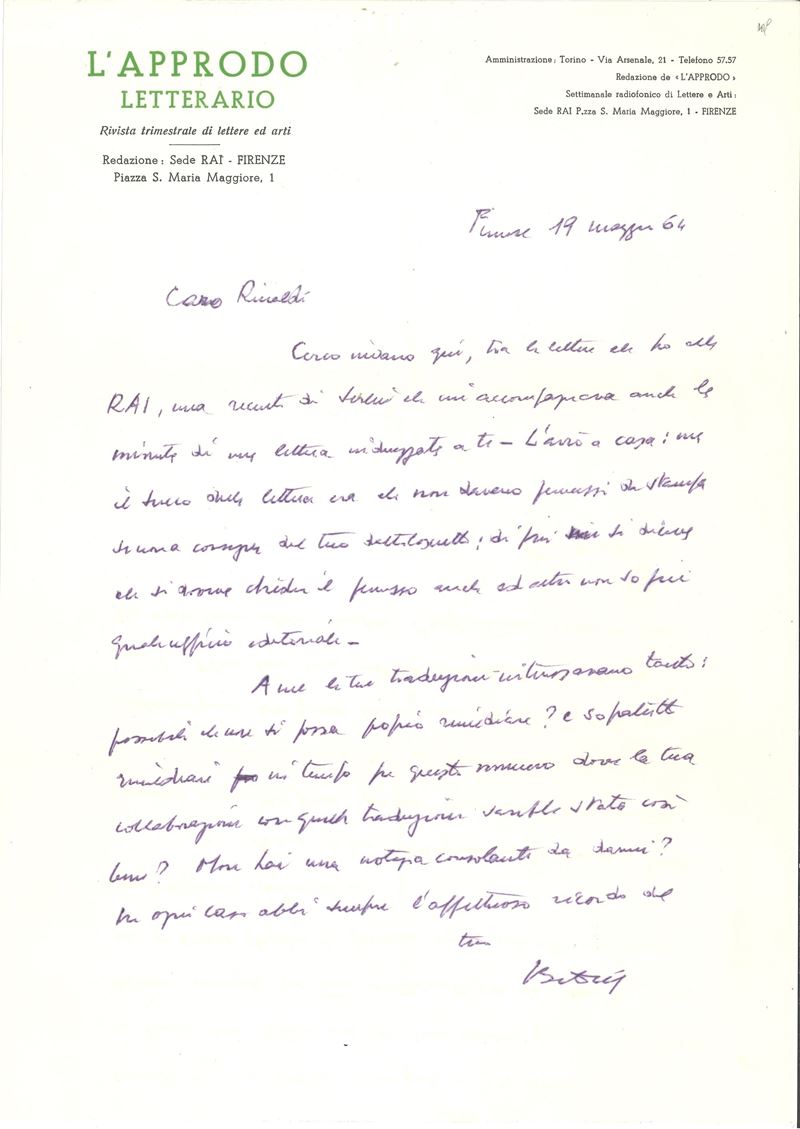 L'APPRODO
LETTERARIO
Rivista trimestrale di lettere ed arti
Redazione: Sede RAI - FIRENZE
Piazza S. Maria Maggiore, 1
Amministrazione: Torino - Via Arsenale, 21 - Telefono 57.57
Redazione de «L'APPRODO»
Settimanale radiofonico di Lettere e Arti:
Sede RAI P.zza S. Maria Maggiore, 1 - FIRENZE
Firenze 19 maggio 64
Caro Rinaldi
Cerco invano qui, tra le lettere che ho alla
RAI, una recente di Sereni che mi accompagnava anche la
minuta di una lettera indirizzata a te - L'avrò a casa: ma
il succo della lettera era che non davano permessi di stampa
se non a consegna del tuo dattiloscritto; di più si diceva
che si doveva chieder il permesso anche ad altri non so più
quale ufficio editoriale -
A me le tue traduzioni interessavano tanto:
possibile che non si possa proprio rimediare? e soprattutto
rimediare in tempo per questo numero dove la tua
collaborazione con quelle traduzioni sarebbe stata così
bene? Non hai una notizia consolante da darmi?
In ogni caso abbi sempre l'affettuoso ricordo del
tuo